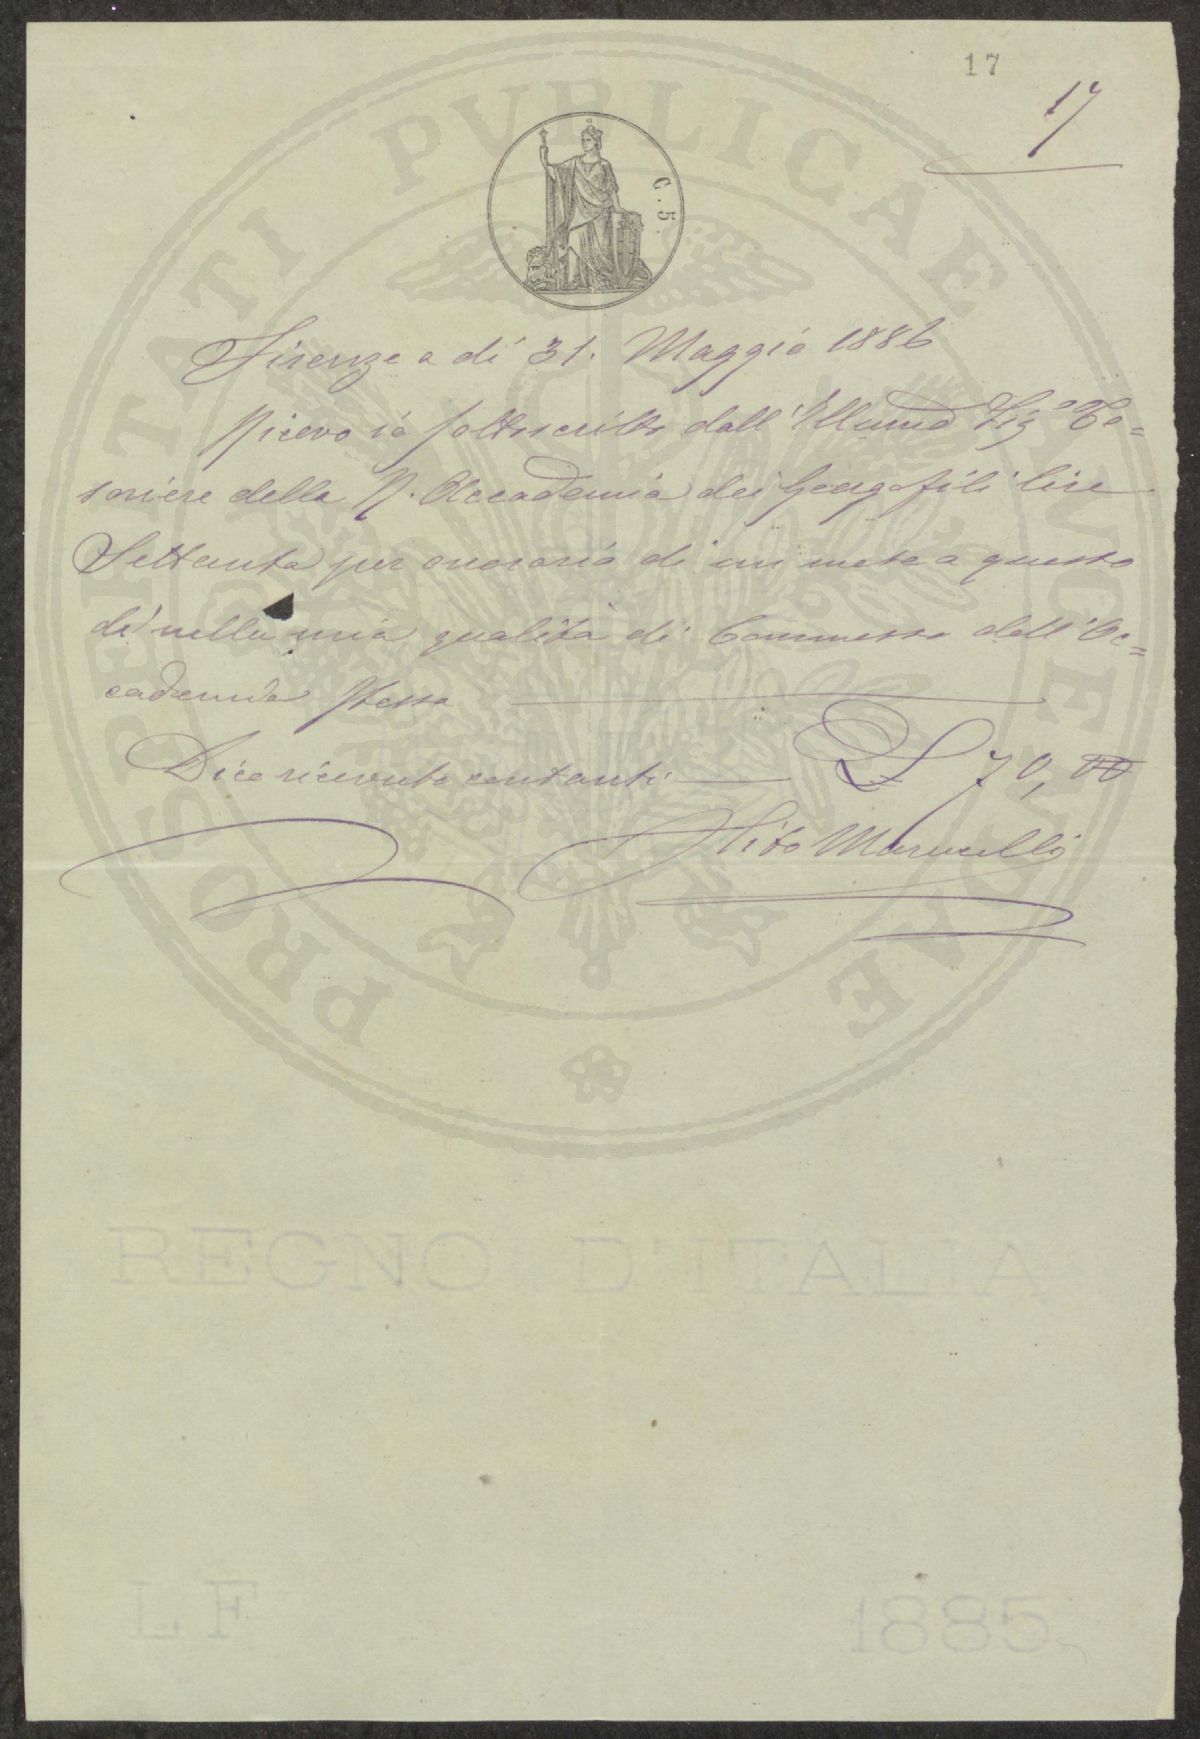 17
17
C. 5.
PROSPERITATI PUBLICAE AUGENDAE
Firenze a dì 31. Maggio 1886
Ricevo io sottoscritto dall'Illumo Sigre Te=
soriere della R. Accademia dei Georgofili lire
Settanta per onorario di un mese a questo
dì nella mia qualità di Commesso dell'Ac=
cademia stessa
Dico ricevute contanti L 70,00
Tito Marucelli
REGNO D'ITALIA
LF 1885